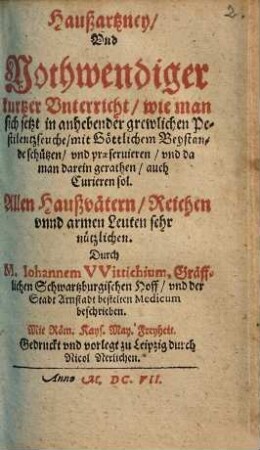 2.
Haußartzney/
Vnd
Nothwendiger
kurtzer Vnterricht/ wie man
sich jetzt in anhebender grewlichen Pe-
stilentzseuche/ mit Göttlichem Beystan-
de schützen/ vnd præseruieren/ vnd da
man darein gerathen/ auch
Curieren sol.
Allen Haußvätern/ Reichen
vnnd armen Leuten sehr
nützlichen.
Durch
M. Iohannem VVittichium, Gräff-
lichen Schwartzburgischen Hoff/ vnd der
Stadt Arnstadt bestelten Medicum
beschrieben.
Mit Röm. Kays. May. Freyheit.
Gedruckt vnd vorlegt zu Leipzig durch
Nicol Nerlichen.
Anno M. DC. VII.